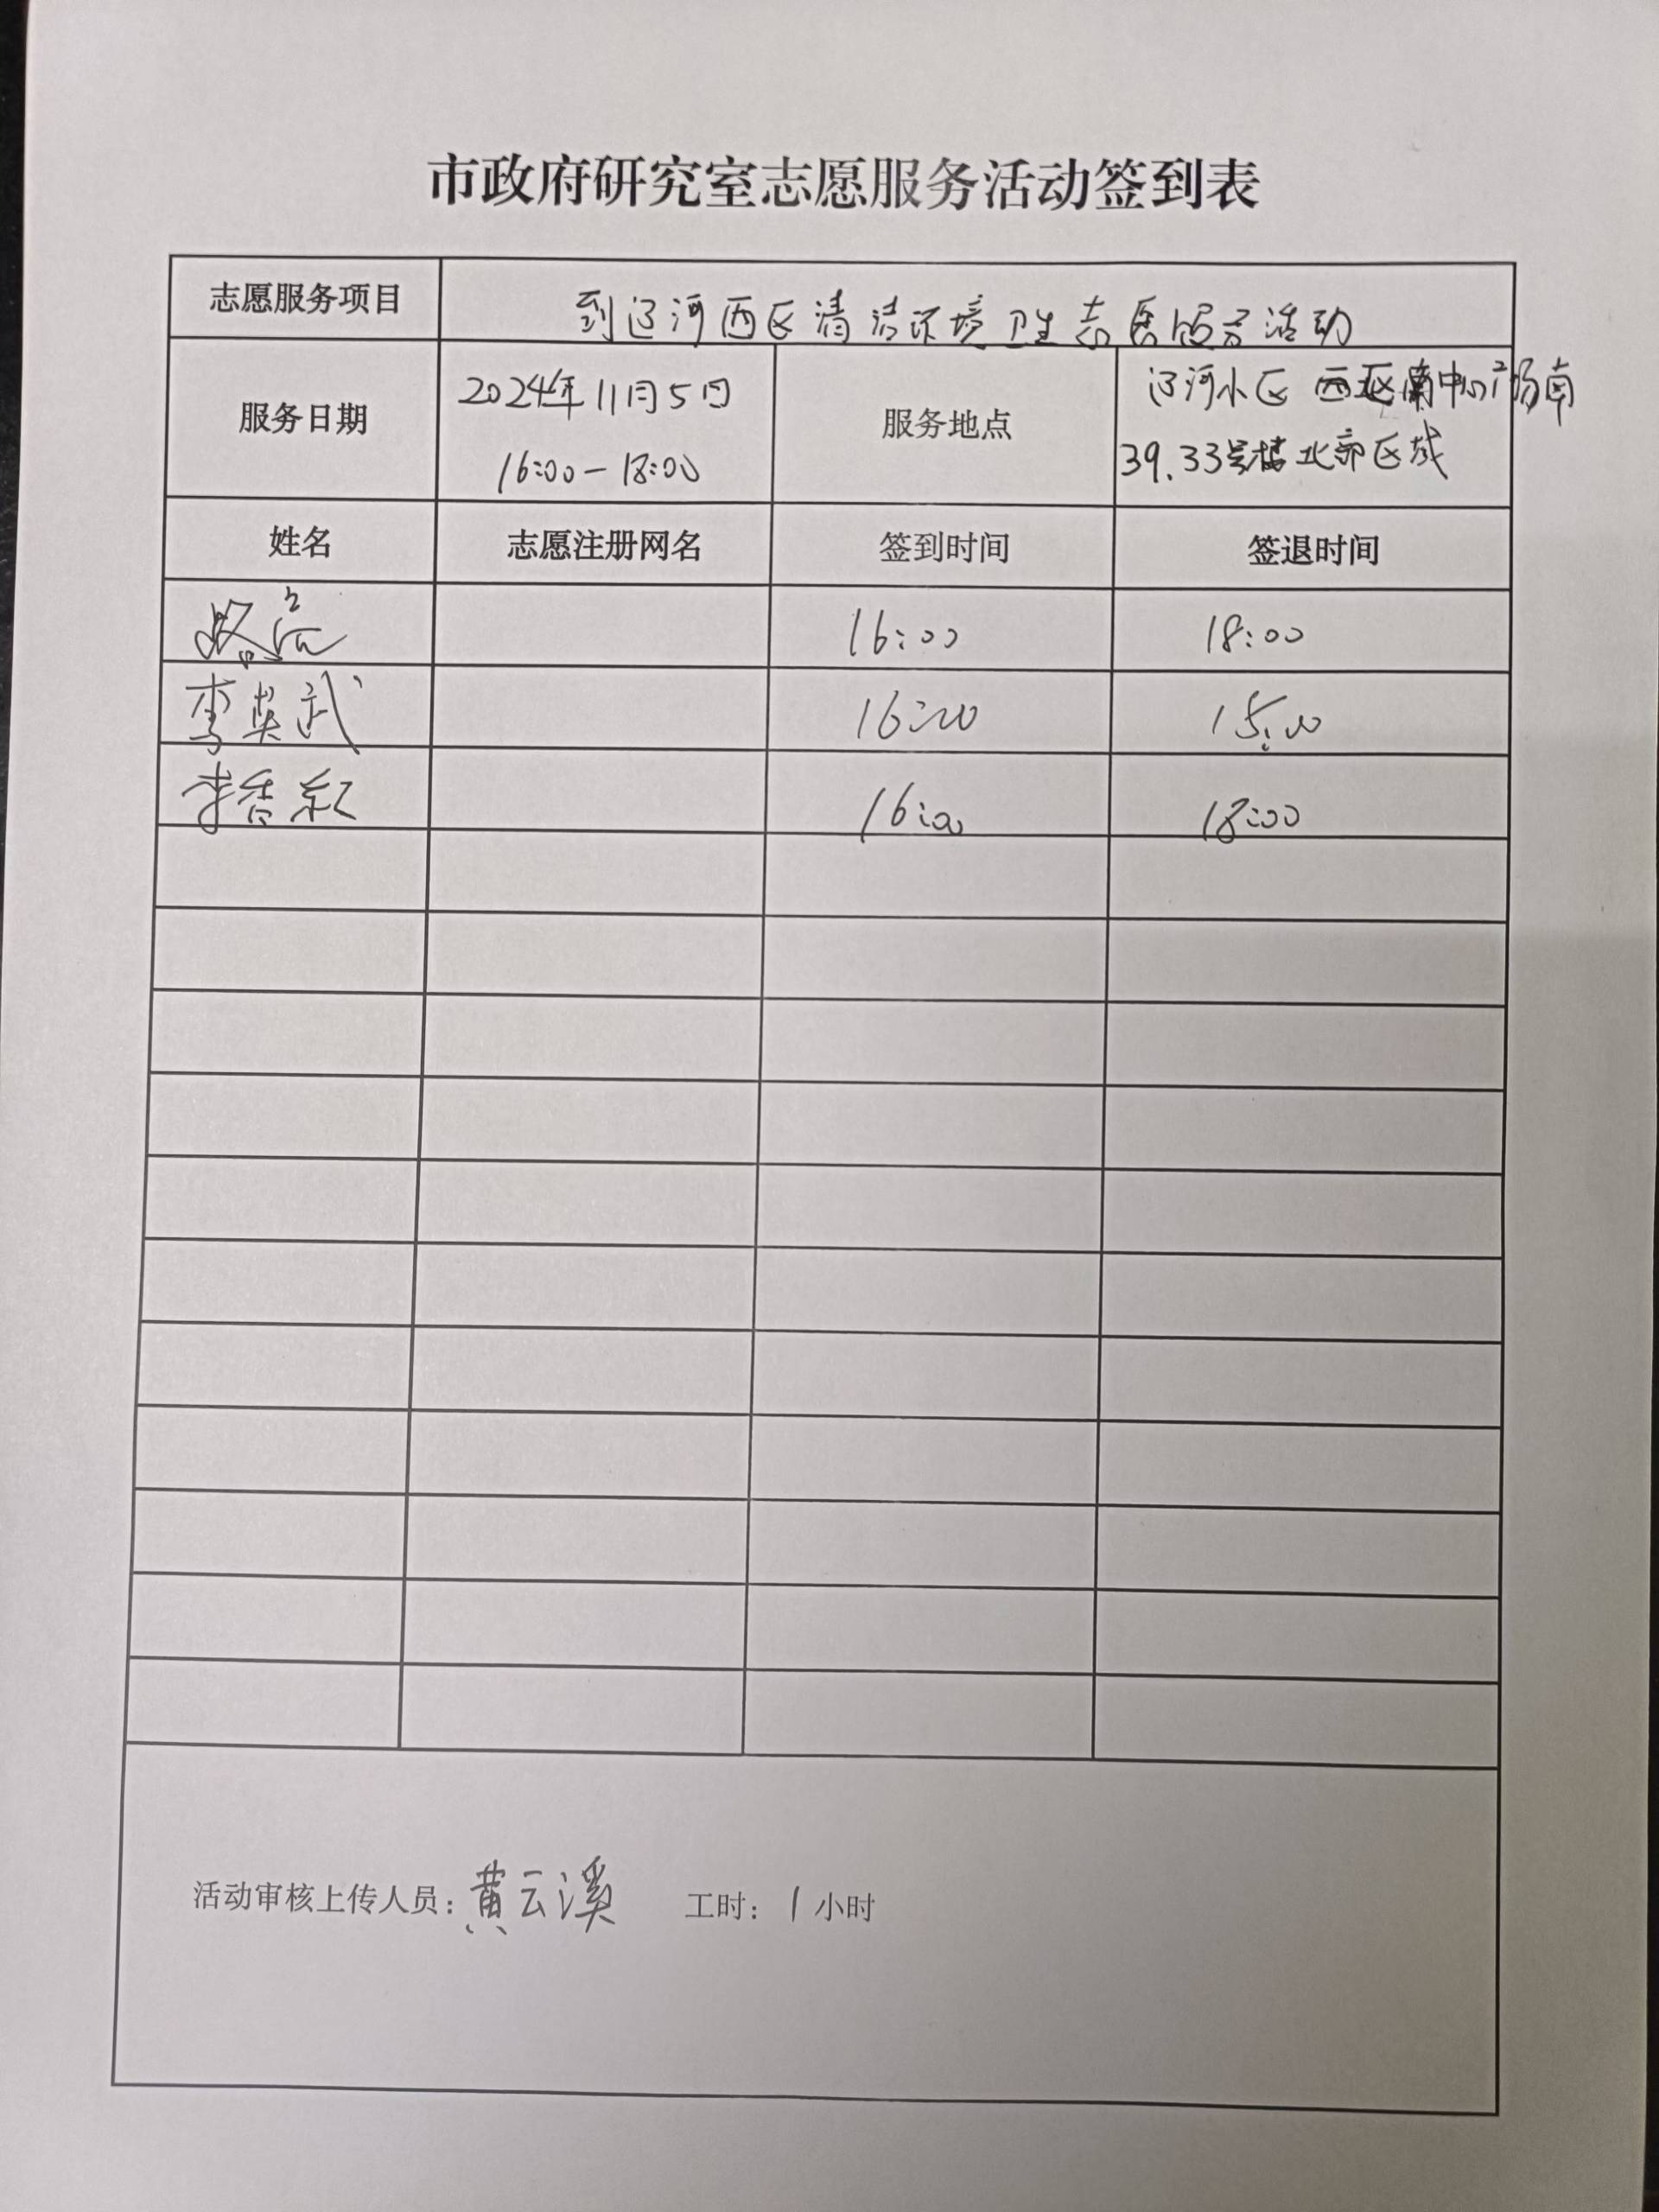 市政府研究室志愿服务活动签到表
志愿服务项目 到辽河西区清洁环境卫生志愿服务活动
服务日期 2024年11月5日 16:00-18:00 服务地点 辽河小区 西区中心广场南
39.33号楼北部区域
姓名 志愿注册网名 签到时间 签退时间
路 16:00 18:00
李英武 16:00 15:00
李香红 16:00 18:00
活动审核上传人员：黄云溪 工时：1小时